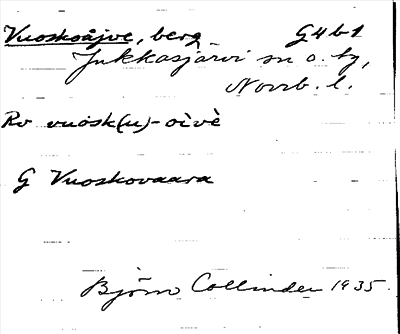 Vuoskoåjve, berg G4b1
Jukkasjärvi sn o. tg,
Norrb. l.
Rv vuosk(u)-oivè
G Vuoskovaara
Björn Collinder 1935.